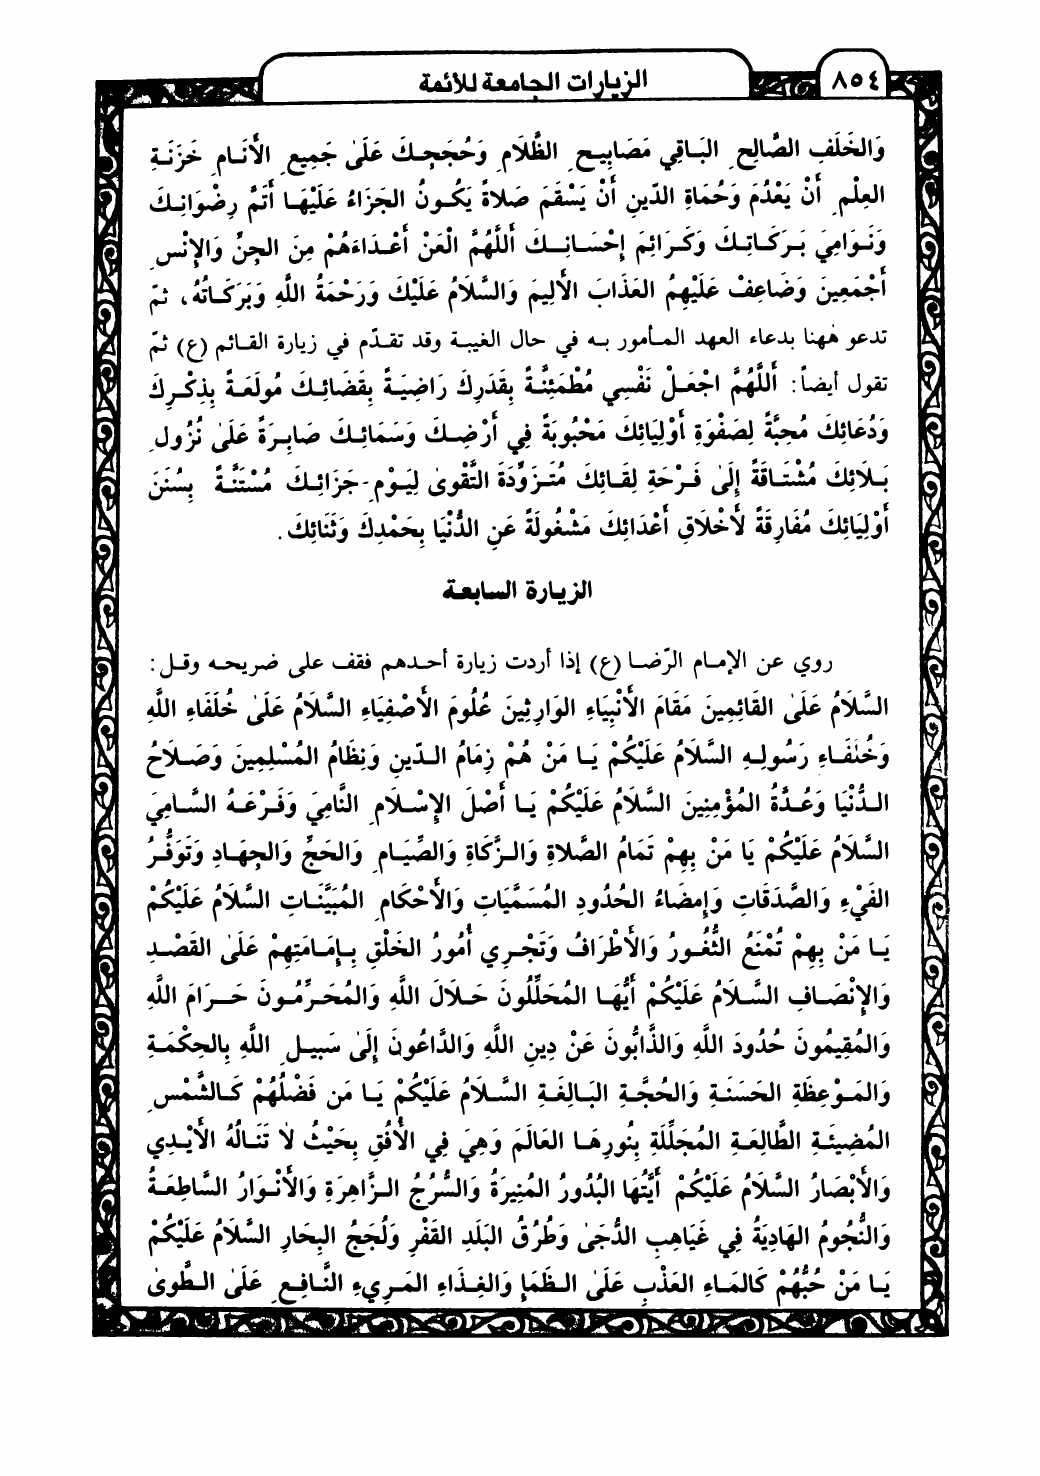 ٨٥٤
الزيارات الجامعة للأئمة
وَالخَلَفِ الصَّالِحِ البَاقِي مَصَابِيحِ الظَّلَامِ وَحُجَجِكَ عَلَىٰ جَمِيعِ الأَنَامِ خَزَنَةِ
العِلْمِ أَنْ يَعْدُمَ وَحُمَاةِ الدّينِ أَنْ يَسْقَمَ صَلاةً يَكُونُ الجَزَاءُ عَلَيْهَا أَتَمَّ رِضْوَانِكَ
وَنَوَامِيَ بَرَكَاتِكَ وَكَرَائِمَ إِحْسَانِكَ أَللَّهُمَّ الْعَنْ أَعْدَاءَهُمْ مِنَ الجِنِّ وَالإِنْسِ
أَجْمَعِينَ وَضَاعِفْ عَلَيْهِمُ العَذَابَ الأَلِيمَ وَالسَّلَامُ عَلَيْكَ وَرَحْمَةُ اللَّهِ وَبَرَكَاتُهُ، ثمّ
تدعو هٰهنا بدعاء العهد المأمور به في حال الغيبة وقد تقدّم في زيارة القائم (ع) ثمّ
تقول أيضاً: أَللَّهُمَّ اجْعَلْ نَفْسِي مُطْمَئِنَّةً بِقَدَرِكَ رَاضِيَةً بِقَضَائِكَ مُولَعَةً بِذِكْرِكَ
وَدُعَائِكَ مُحِبَّةً لِصَفْوَةِ أَوْلِيَائِكَ مَحْبُوبَةً فِي أَرْضِكَ وَسَمَائِكَ صَابِرَةً عَلَىٰ نُزُولِ
بَلَائِكَ مُشْتَاقَةً إِلَىٰ فَرْحَةِ لِقَائِكَ مُتَزَوِّدَةً التَّقْوىٰ لِيَوْمِ جَزَائِكَ مُسْتَنَّةً بِسُنَنِ
أَوْلِيَائِكَ مُفَارِقَةً لأَخْلَاقِ أَعْدَائِكَ مَشْغُولَةً عَنِ الدُّنْيَا بِحَمْدِكَ وَثَنَائِكَ.
الزيارة السابعة
روي عن الإمام الرّضا (ع) إذا أردت زيارة أحدهم فقف على ضريحه وقل:
السَّلَامُ عَلَىٰ القَائِمِينَ مَقَامَ الأَنْبِيَاءِ الوَارِثِينَ عُلُومَ الأَصْفِيَاءِ السَّلَامُ عَلَىٰ خُلَفَاءِ اللَّهِ
وَخُلَفَاءِ رَسُولِهِ السَّلَامُ عَلَيْكُمْ يَا مَنْ هُمْ زِمَامُ الدّينِ وَنِظَامُ المُسْلِمِينَ وَصَلَاحُ
الدُّنْيَا وَعُدَّةُ المُؤْمِنِينَ السَّلَامُ عَلَيْكُمْ يَا أَصْلَ الإِسْلَامِ النَّامِيَ وَفَرْعَهُ السَّامِيَ
السَّلَامُ عَلَيْكُمْ يَا مَنْ بِهِمْ تَمَامُ الصَّلَاةِ وَالزَّكَاةِ وَالصِّيَامِ وَالحَجِّ وَالجِهَادِ وَتَوَفُّرُ
الفَيْءِ وَالصَّدَقَاتِ وَإِمضَاءُ الحُدُودِ المُسَمَّيَاتِ وَالأَحْكَامِ المُبَيَّنَاتِ السَّلَامُ عَلَيْكُمْ
يَا مَنْ بِهِمْ تُمْنَعُ الثُّغُورُ وَالأَطْرَافُ وَتَجْرِي أُمُورُ الخَلْقِ بِإِمَامَتِهِمْ عَلَىٰ القَصْدِ
وَالإِنْصَافِ السَّلَامُ عَلَيْكُمْ أَيُّهَا المُحَلِّلُونَ حَلَالَ اللَّهِ وَالمُحَرِّمُونَ حَرَامَ اللَّهِ
وَالمُقِيمُونَ حُدُودَ اللَّهِ وَالذَّابُّونَ عَنْ دِينِ اللَّهِ وَالدَّاعُونَ إِلَىٰ سَبِيلِ اللَّهِ بِالحِكْمَةِ
وَالمَوْعِظَةِ الحَسَنَةِ وَالحُجَّةِ البَالِغَةِ السَّلَامُ عَلَيْكُمْ يَا مَن فَضْلُهُمْ كَالشَّمْسِ
المُضِيئَةِ الطَّالِعَةِ المُجَلِّلَةِ بِنُورِهَا العَالَمَ وَهِيَ فِي الأُفُقِ بِحَيْثُ لَا تَنَالُهُ الأَيْدِي
وَالأَبْصَارُ السَّلَامُ عَلَيْكُمْ أَيَّتُهَا البُدُورُ المُنِيرَةُ وَالسُّرُجُ الزَّاهِرَةِ وَالأَنْوَارُ السَّاطِعَةُ
وَالنُّجُومُ الهَادِيَةُ فِي غَيَاهِبِ الدُّجَىٰ وَطُرُقُ البَلَدِ القَفْرِ وَلُجَجُ البِحَارِ السَّلَامُ عَلَيْكُمْ
يَا مَنْ حُبُّهُمْ كَالمَاءِ العَذْبِ عَلَىٰ الظَمَإِ وَالغِذَاءِ المَرِيءِ النَّافِعِ عَلَىٰ الطَّوىٰ